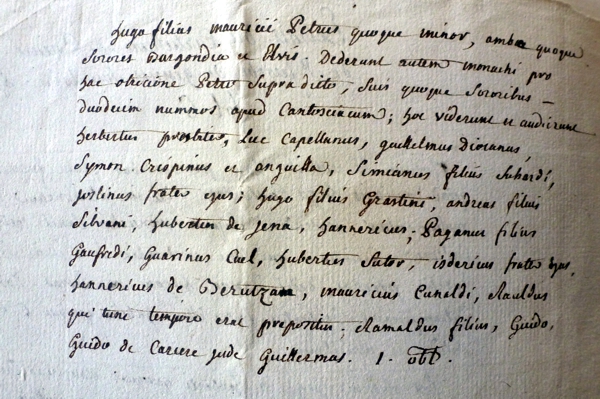 hugo filius mauricii Petrus quoque minor, ambæ quoque
Sorores Dargondia et Elvis. Dederunt autem monachi pro
hac obicione Petro Supradicto, Suis quoque Sororibus –
duodecim nummos apud Cantosciacum; hoc viderunt et audierunt
herbertus Luc Capellanus, guillelmus
Symon Crispinus et anguilla, Simianus filius Suhardi,
frater ejus; hugo filius Grastini, andreas filius
Silvani, hubertus de Jena, hannericus; Paganus filius
Gaufredi, Guarinus Cael, hubertus Sutor, isdericus frater ejus,
hannericus de mauricius Cunaldi, Rauldus
qui tunc tempore erat prepositus; Ramaldus filius, Guido,
Guido de Carcere jude Guillermus. 1. obl.